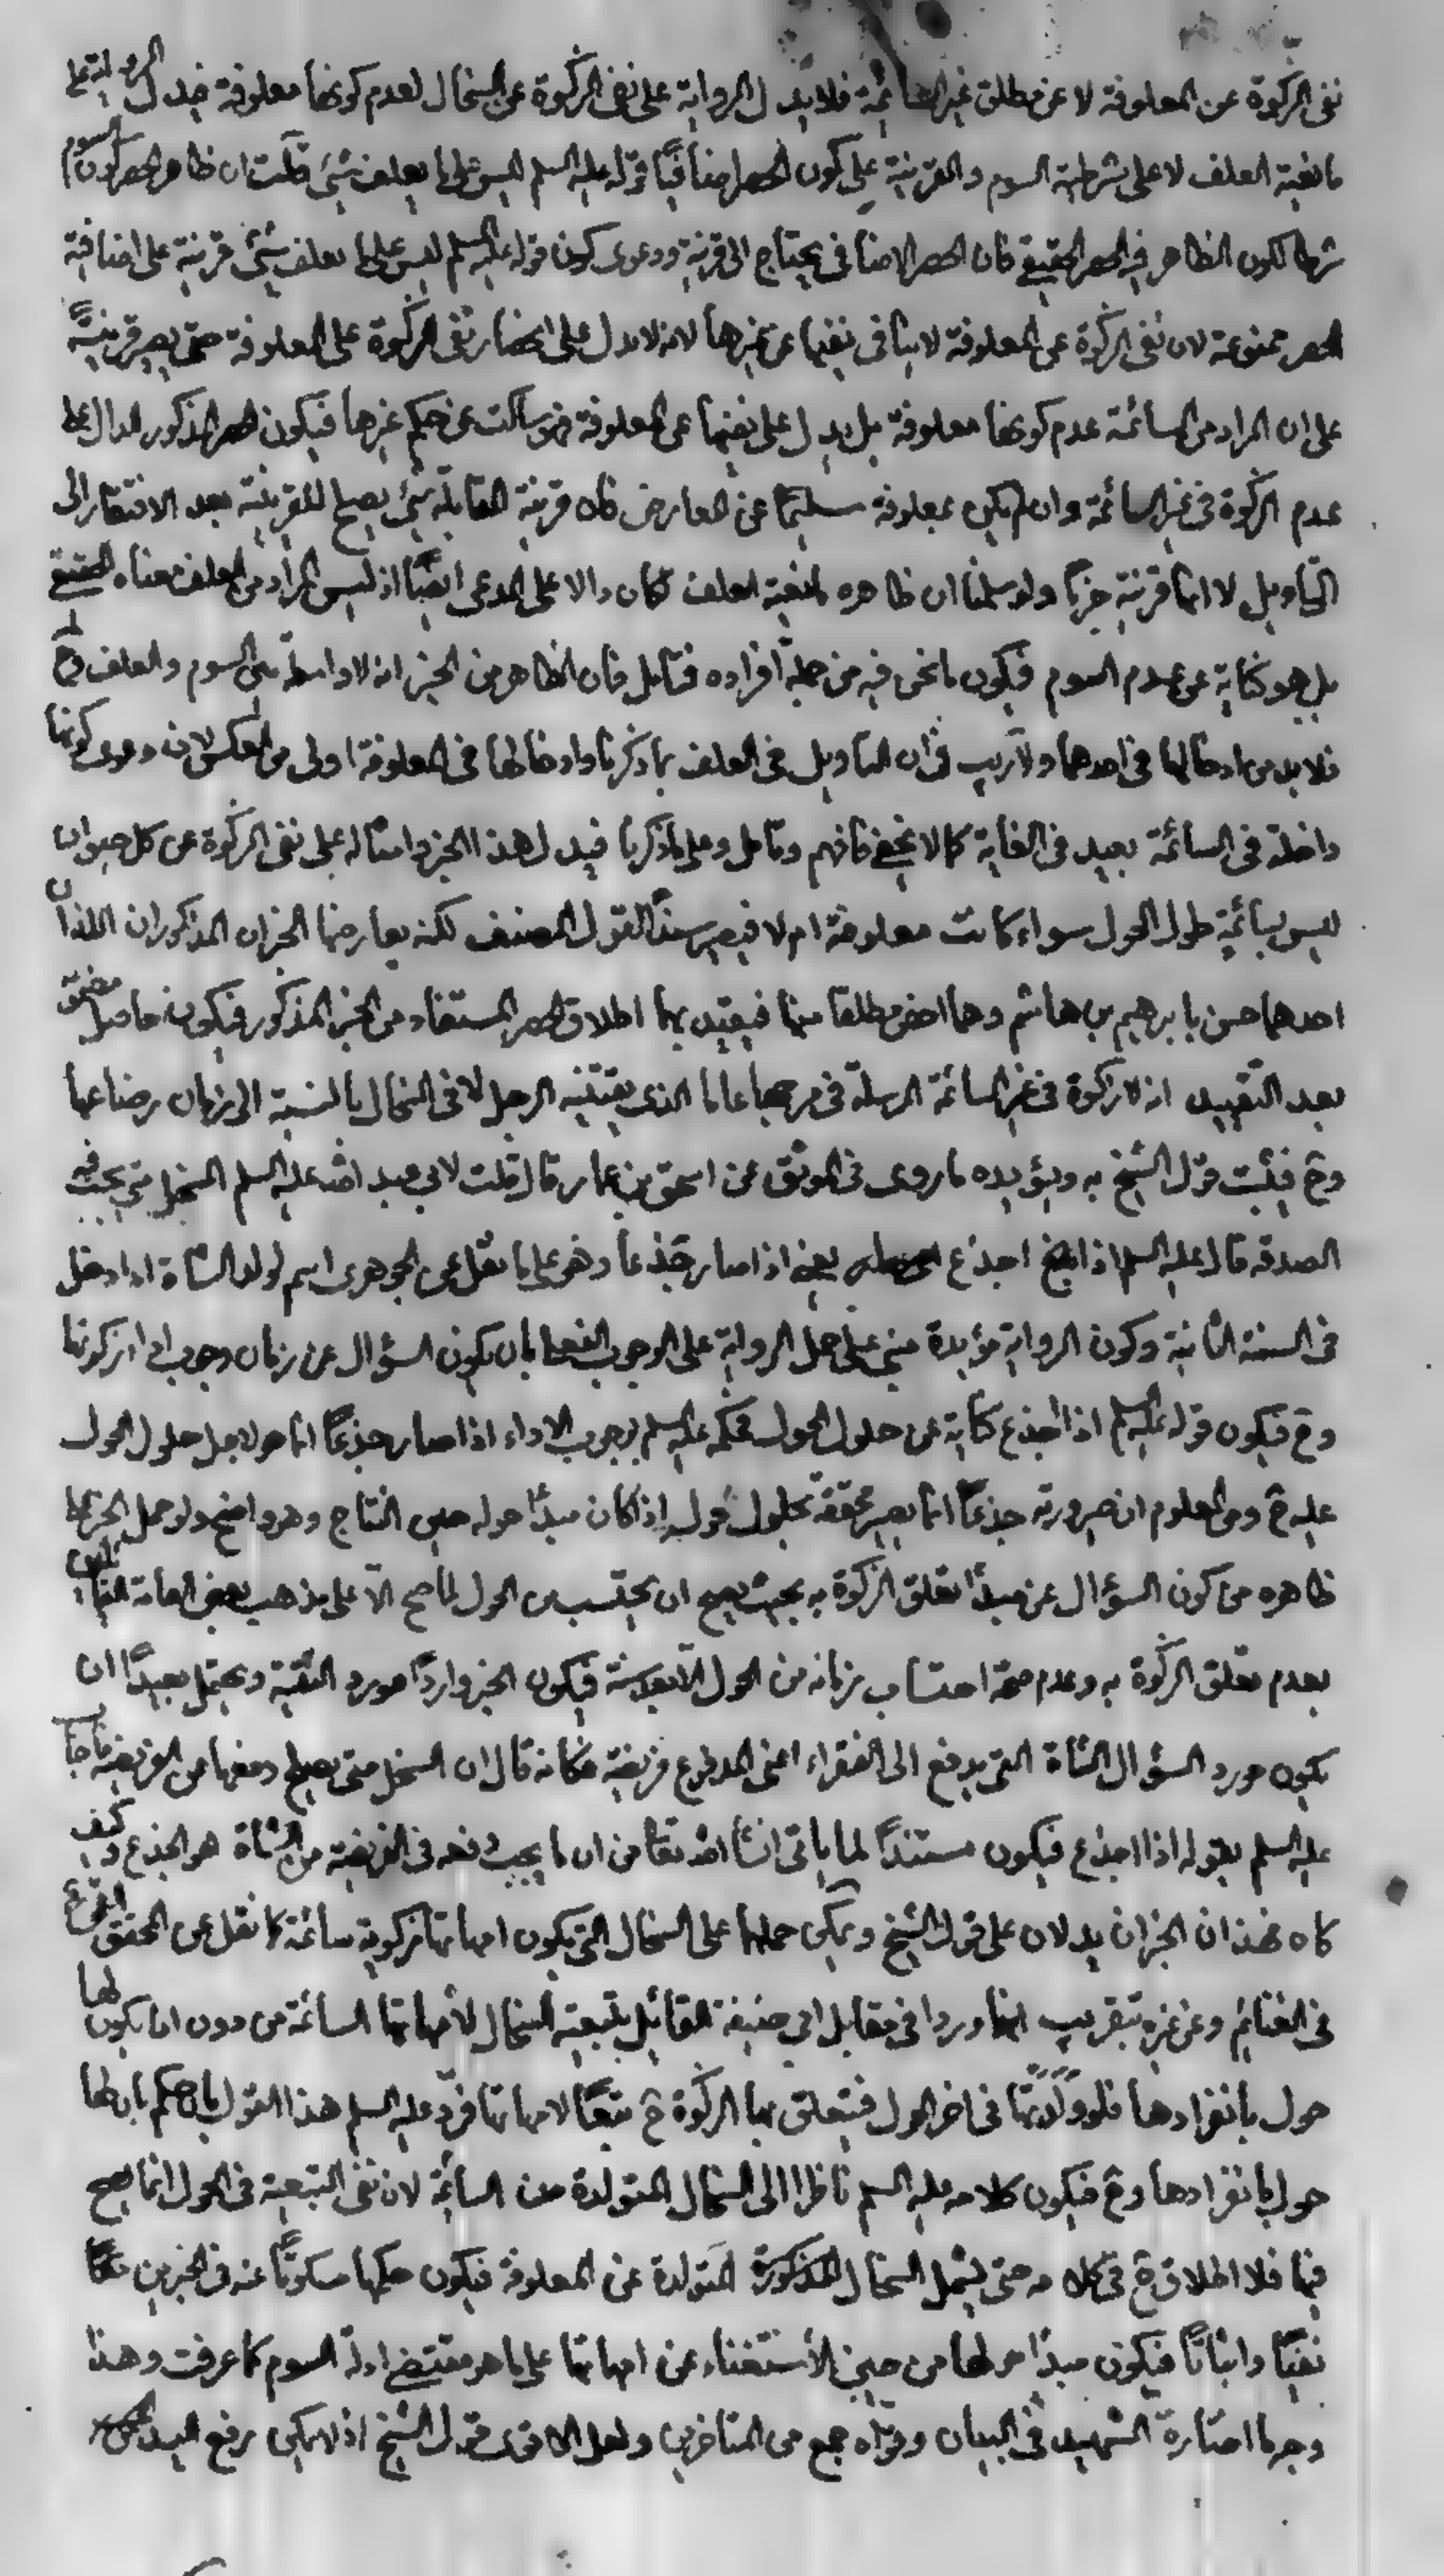 نفى الزكوة عن المعلوفة لا عن مطلق غير السائمة فلا يدل الرواية على نفى الزكوة عن السخال لعدم كونها معلوفة فيدل الرواية على
مانعية العلف لا على شرطية السوم والقرينة على كون الحصر اضافيا قوله عليه السلم ليس على ما يعلف شئ قلت ان ظاهر الحصر كون السوم
شرطا لكون الظاهر فيه الحصر الحقيقى فان الحصر الاضافى يحتاج الى قرينة ودعوى كون قوله عليه السلم ليس على ما يعلف شئ قرينة على اضافية
الحصر ممنوعة لان نفى الزكوة عن المعلوفة لا ينافى نفيها عن غيرها لانه لا يدل على انحصار نفى الزكوة على المعلوفة حتى يصير قرينة
على ان المراد من السائمة عدم كونها معلوفة بل يدل على نفيها عن المعلوفة فهو ساكت عن حكم غيرها فيكون الحصر المذكور الدال على
عدم الزكوة فى غير السائمة وان لم يكن بمعلوفة سليما عن المعارض فان قرينة المقابلة شئ يصلح للقرينة بعد الافتقار الى
التاويل لا انها قرينة جزما ولو سلمنا ان ظاهره مانعية العلف لكان دالا على المدعى ايضا اذ ليس المراد من العلف معناه الحقيقى
بل هو كناية عن عدم السوم فيكون ما نحن فيه من جملة افراده فتامل فان الظاهر من الخبر انه لا واسطة بين السوم والعلف وح
فلا بد من ادخالها فى احدهما ولا ريب فى ان التاويل فى العلف بما ذكرنا وادخالها فى المعلوفة اولى من العكس لان دعوى كونها
داخلة فى السائمة بعيد فى الغاية كما لا يخفى فافهم وتامل وعلى ما ذكرنا فيدل هذا الخبر وامثاله على نفى الزكوة عن كل حيوان
ليس بسائمة طول الحول سواء كانت معلوفة ام لا فيصير سندا لقول المصنف لكنه يعارضها الخبران المذكوران اللذان
احدهما حسن بابرهيم بن هاشم وهما اخص مطلقا منها فيقيد بهما اطلاق الحصر المستفاد من الخبر المذكور فيكون حاصل
بعد التقييد انه لا زكوة فى غير السائمة المرسلة فى مرجها عامها الذى يقتنيه الرجل لا فى السخال بالنسبة الى زمان رضاعها
وح فيثبت قول الشيخ ره ويؤيده ما روى فى الموثق عن اسحق بن عمار قال قلت لابى عبد الله عليه السلم السخل متى يجب فيه
الصدقة قال عليه السلم اذا اجذع يعنى اذا صار جذعا وهو على ما نقل عن الجوهرى اسم لولد الشاة اذا دخل
فى السنة الثانية وكون الرواية مؤيدة مبنى على حمل الرواية على الوجوب الفعلى بان يكون السؤال عن زمان وجوب اداء زكوتها
وح فيكون قوله عليه السلم اذا اجذع كناية عن حلول الحول فحكمه عليه السلم بوجوب الاداء اذا صار جذعا انما هو لاجل حلول الحول
عليه ح ومن المعلوم ان صيرورته جذعا انما يصير محققة بحلول حوله اذا كان مبدأ حوله حين النتاج وهو واضح ولو حمل الخبر على
ظاهره من كون السؤال عن مبدأ تعلق الزكوة به بحيث يصح ان يحتسب من الحول لما صح الا على مذهب بعض العامة القائلين
بعدم تعلق الزكوة به وعدم صحة احتساب زمانه من الحول الا بعد سنة فيكون الخبر واردا مورد التقية ويحتمل بعيدا ان
يكون مورد السؤال الشاة التى يدفع الى الفقراء اعنى المدفوع فريضة فكانه قال ان السخل متى يصلح دفعها من الفريضة فاجاب
عليه السلم بقوله اذا اجذع فيكون مستندا لما ياتى انشاء الله تعا من ان ما يجب دفعه فى الفريضة من الشاة هو الجذع وكيف
كان فهذان الخبران يدلان على قول الشيخ ويمكن حملها على السخال التى يكون امهاتها زكوية سائمة كما نقل عن المحقق القمى
فى الغنائم وعن غيره بتقريب انهما وردا فى مقابل ابى حنيفة القائل بتبعية السخال لأمهاتها السائمة من دون ان يكون لها
حول بانفرادها فلو ولدتها فى اخر الحول فيتعلق بها الزكوة ح تبعا لامهاتها فرد عليه السلم هذا القول بالحكم بان لها
حول بانفرادها وح فيكون كلامه عليه السلم ناظرا الى السخال المتولدة من السائمة لان نفى التبعية فى الحول انما يصح
فيها فلا اطلاق ح فى كلامه حتى يشمل السخال المذكورة المتولدة عن المعلوفة فيكون حكمها مسكوتا عنه فى الخبرين
نفيا واثباتا فيكون مبدأ حولها من حين الأستغناء عن امهاتها على ما هو مقتضى ادلة السوم كما عرفت وهذا
وجه ما اختاره الشهيد فى البيان وقواه جمع من المتاخرين ولعل الاقوى قول الشيخ اذ لا يمكن رفع اليد عن